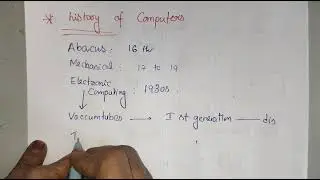 * History of Computers
Abacus : 16 th
Mechanical : 17 to 19
Electronic
Computing : 1930s.
Vaccumtubes → I st generation — dis
T